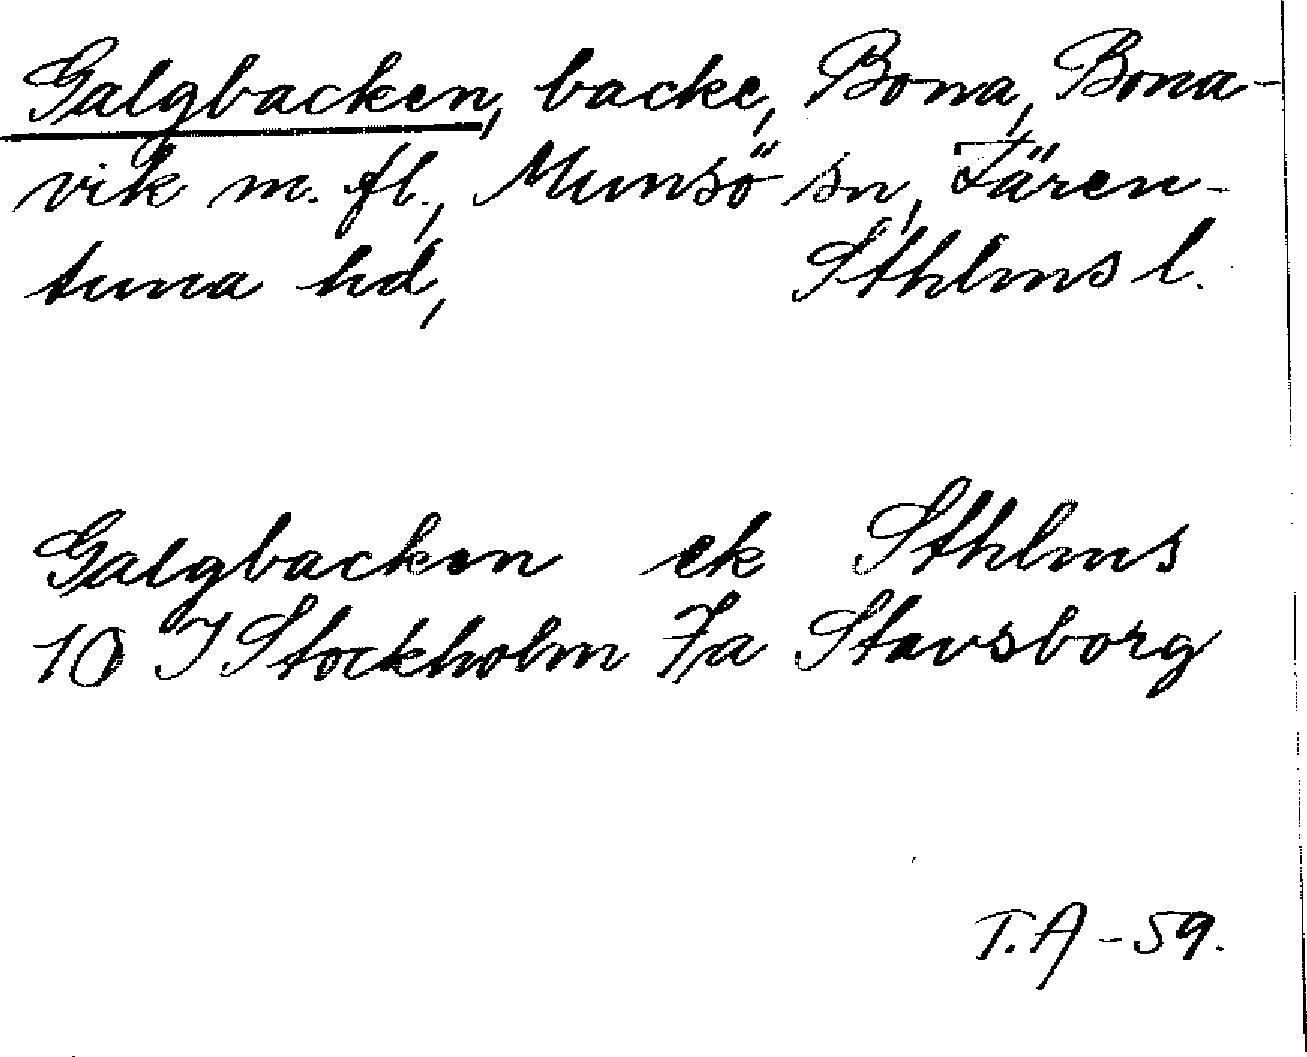 Galgbacken, backe, Bona, Bona-
vik m. fl., Munsö sn, Fären-
tuna hd, Sthlms l.
Galgbacken ek Sthlms
10 I Stockholm 7a Stavsborg
T.A -59.